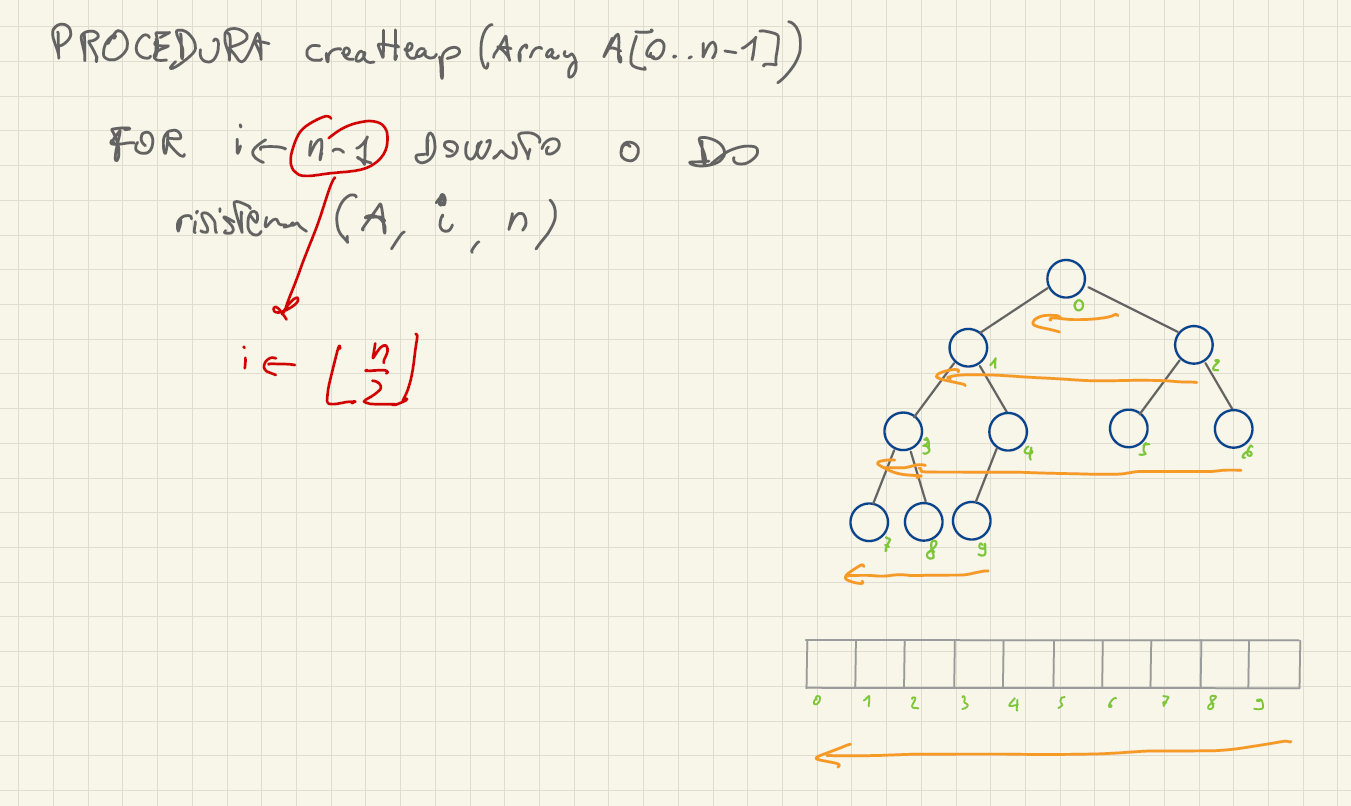 PROCEDURA creaHeap (Array A[0..n-1])
FOR i ← n-1 DOWNTO 0 DO
risistema (A, i, n)
i ← ⌊n/2⌋
0
1 2
3 4 5 6
7 8 9
0 1 2 3 4 5 6 7 8 9